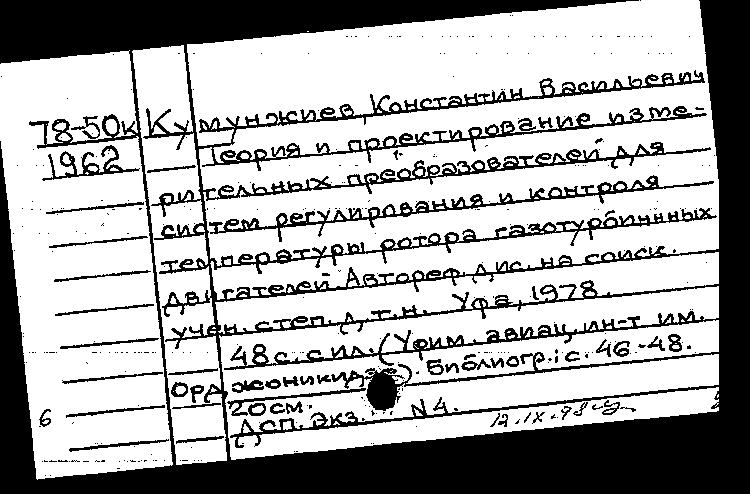 78-50к Кумунжиев, Константин Васильевич
1962 Теория и проектирование изме-
рительных преобразователей для
систем регулирования и контроля
температуры ротора газотурбиннных
двигателей. Автореф. дис. на соиск.
учен. степ. д.т.н. Уфа, 1978.
48 с. с ил. (Уфим. авиац. ин-т им.
Орджоникидзе). Библиогр.: с. 46-48.
20 см.
6 ДСП. Экз. N4. 12.IX.78